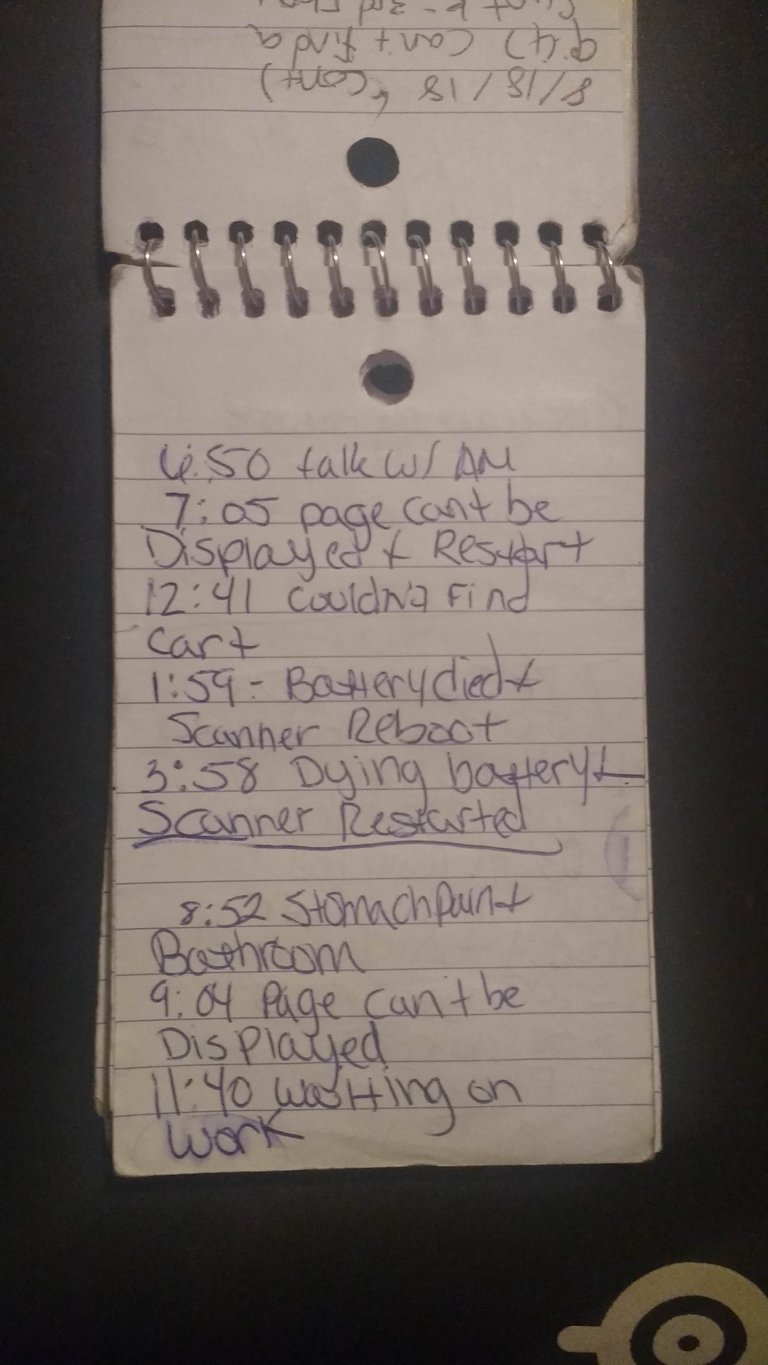 8/18/18 (cont)
9:47 can't find a
6:50 talk w/ AM
7:05 page can't be
Displayed + Restart
12:41 Couldn't Find
Cart
1:59- Battery died +
Scanner Reboot
3:58 Dying battery +
Scanner Restarted
8:52 Stomach Pain +
Bathroom
9:04 Page can't be
Displayed
11:40 waiting on
work